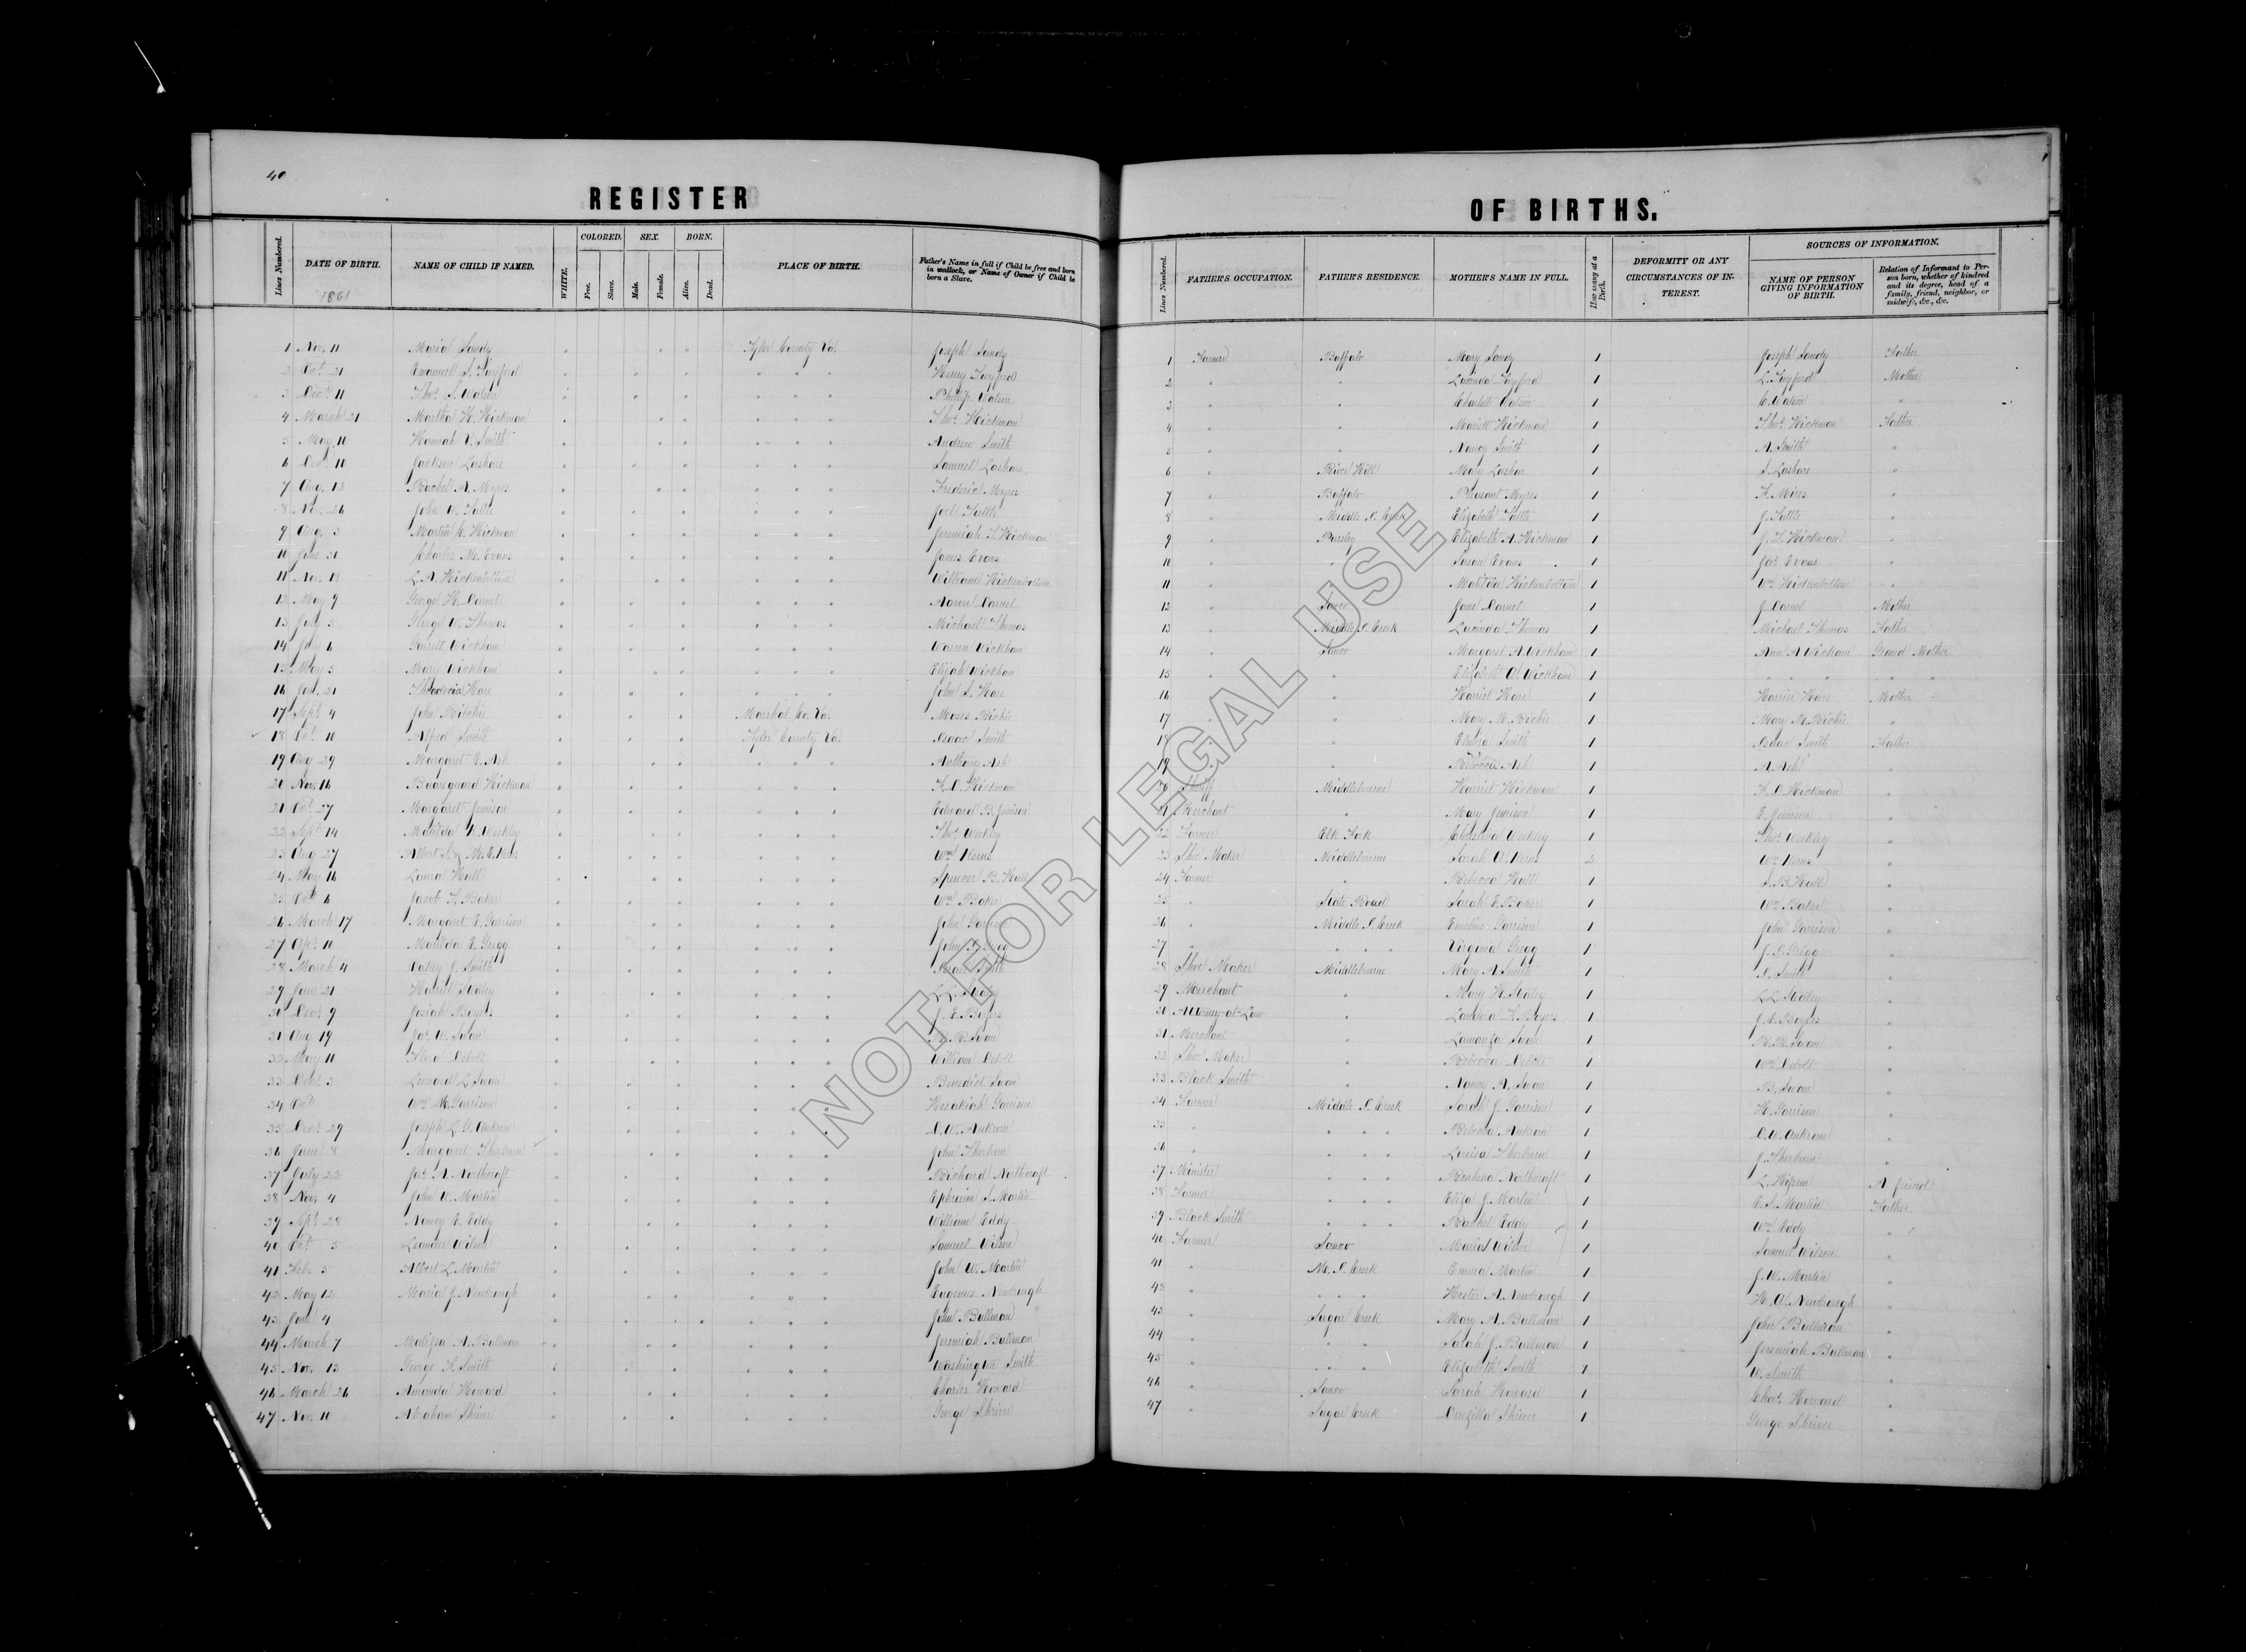 40
REGISTER
OF BIRTHS.
Lines Numbered.
DATE OF BIRTH.
1861
NAME OF CHILD IF NAMED.
WHITE.
COLORED.
Free.
Slave.
SEX.
Male.
Female.
BORN.
Alive.
Dead.
PLACE OF BIRTH.
Father's Name in full if Child be free and born
in wedlock, or Name of Owner if Child be
born a Slave.
Lines Numbered.
FATHER'S OCCUPATION.
FATHER'S RESIDENCE.
MOTHER'S NAME IN FULL.
How many at a Birth.
DEFORMITY OR ANY
CIRCUMSTANCES OF IN-
TEREST.
SOURCES OF INFORMATION.
NAME OF PERSON
GIVING INFORMATION
OF BIRTH.
Relation of Informant to Per-
son born, whether of kindred
and its degree, head of a
family, friend, neighbor, or
midwife, &c., &c.
1 Nov. 11 Maria Sandy " " " Tyler County Va. Joseph Sandy 1 Farmer Buffalo Mary Sandy 1 Joseph Sandy Father
2 Oct. 21 Henry 2 " " 1 Mother
3 Dec. 11 Thos. S. Watson Philip Watson 3 " " Watson 1 C. Watson "
4 March 21 Martha H. Hickman Thos. Hickman 4 " " Hickman 1 Thos. Hickman Father
5 May 10 Hannah V. Smith Andrew Smith 5 " " Nancy Smith 1 A. Smith "
6 Dec. 10 Jackson Lashare Samuel Lashare 6 " Mary 1 S. Lashare "
7 Aug. 12 Rachel A. Myres Frederic Myres 7 " Buffalo Pleasant Myres 1 F. Mires "
8 Nov. 26 John W. Tuttle Joel Tuttle 8 " Middle I. Creek Elizabeth Tuttle 1 J. Tuttle "
9 Aug. 3 Martin C. Hickman Jeremiah T. Hickman 9 " Pursley Elizabeth A. Hickman 1 J. T. Hickman "
10 June 31 Charles M. Evans James Evans 10 " " Susan Evans 1 Jas. Evans "
11 Nov. 18 L. A. Hickenbottom William Hickenbottom 11 " " Matilda Hickenbottom 1 Wm. Hickenbottom "
12 May 9 George H. Daniel Aaron Daniel 12 " Jane Daniel 1 J. Daniel Mother
13 July 5 George W. Thomas Michael Thomas 13 " Middle I. Creek Lucinda Thomas 1 Michael Thomas Father
14 July 6 Garrett Wickham Warren Wickham 14 " Margaret A. Wickham 1 Ann A Wickam Grand Mother
15 May 5 Mary Wickham Elijah Wickham 15 " " Elizabeth A. Wickham 1 " " " " "
16 Jan. 21 Hare John S. Hare 16 " " Harriet Hare 1 Harriet Hare Mother
17 Sept. 4 John Ritchie Marshal Co. Va. Moses Richie 17 " " Mary M. Richie 1 Mary M. Richie "
18 Oct. 10 Alfred Smith Tyler County Va. Isaac Smith " " Smith 1 Isaac Smith Father
19 Aug. 29 Margaret E. Ash Anthony Ash Rebecca Ash 1 A. Ash "
20 Nov. 16 Hickman F. D. Hickman Sheriff Middlebourne Harriet Hickman 1 F. D. Hickman "
21 Oct. 27 Margarett Jemison Edward B. Jemison Merchant " Mary Jemison 1 E. Jemison "
22 Sept. 14 Matilda W. Weekley Thos. Weekley 22 Farmer Elk Fork Weekley 1 Thos. Weekley "
23 Aug. 27 Wm. Kerns 23 Shoe Maker Middlebourne Sarah A. Kerns 2 Wm. Kerns "
24 May 16 Laura Hull Spencer B. Hull 24 Farmer " Rebecca Hull 1 S. B. Hull "
25 Oct. 6 Jacob F. Baker Wm. Baker 25 " State Road Sarah E. Baker 1 Wm. Baker "
26 March 17 Margaret E. Garrison John Garrison 26 " Middle I. Creek Emeline Garrison 1 John Garrison "
27 Apr. 10 Matilda E. Gregg John 27 " " " " Virginia Gregg 1 J. S. Gregg "
28 March 4 J. Smith Smith 28 Shoe Maker Middlebourne Mary A. Smith 1 I. Smith "
29 June 21 Harriet Staley L. L. Staley 29 Merchant " Mary H. Staley 1 L. L. Staley "
30 Dec. 9 Josiah Boyers J. C. Boyers 30 Attorney-at-Law " Boyers 1 J. C. Boyers "
31 Aug 19 Jas. W. Swan Swan 31 Merchant " Swan 1 Swan "
32 May 11 Debolt William Debolt 32 Shoe Maker " Rebecca Debolt 1 Wm. Debolt "
33 Dec. 3 Leonard L. Swan Benedict Swan 33 Black Smith " Nancy A. Swan 1 B. Swan "
34 Oct. Wm. M. Garrison Hezakiah Garrison 34 Farmer Middle I. Creek Sarah J. Garrison 1 H. Garrison "
35 Dec. 29 Joseph L. G. Ankrom D. W. Ankrom 35 " " " " Rebecca Ankrom 1 D. W. Ankrom "
36 June 8 Margaret Thorburn John Thorburn 36 " " " " Louisa Thorburn 1 J. Thorburn "
37 July 22 Jas. A. Northcraft Richard Northcraft 37 Minister " " " Northcraft 1 A friend
38 Nov. 4 John W. Martin Ephraim S. Martin 38 Farmer " " " Eliza J. Martin 1 E. S. Martin Father
39 Sept. 28 Nancy E. Eddy William Eddy 39 Black Smith " " " Rachel Eddy 1 Wm. Eddy "
40 Oct. 5 Leander Wilson Samuel Wilson 40 Farmer Maria Wilson 1 Samuel Wilson "
41 Feb. 5 Albert L. Martin John W. Martin 41 " M. I. Creek Emma Martin 1 J. W. Martin "
42 May 12 Maria J. Newbrough Eugenius Newbrough 42 " " " " Hester A. Newbrough 1 H. A. Newbrough "
43 June 4 John Bullman 43 " Sugar Creek Mary A. Bullman 1 John Bullman "
44 March 7 A. Bullman Jeremiah Bullman 44 " " " Sarah J. Bullman 1 Jeremiah Bullman "
45 Nov. 13 George H. Smith Washington Smith 45 " " " Elizabeth Smith 1 W. Smith "
46 March 26 Amanda Howard Charles Howard 46 " Sarah Howard 1 Chas. Howard "
47 Nov. 10 Abraham Shriver George Shriver 47 " Sugar Creek Druzilla Shriver 1 George Shriver "
NOT FOR LEGAL USE